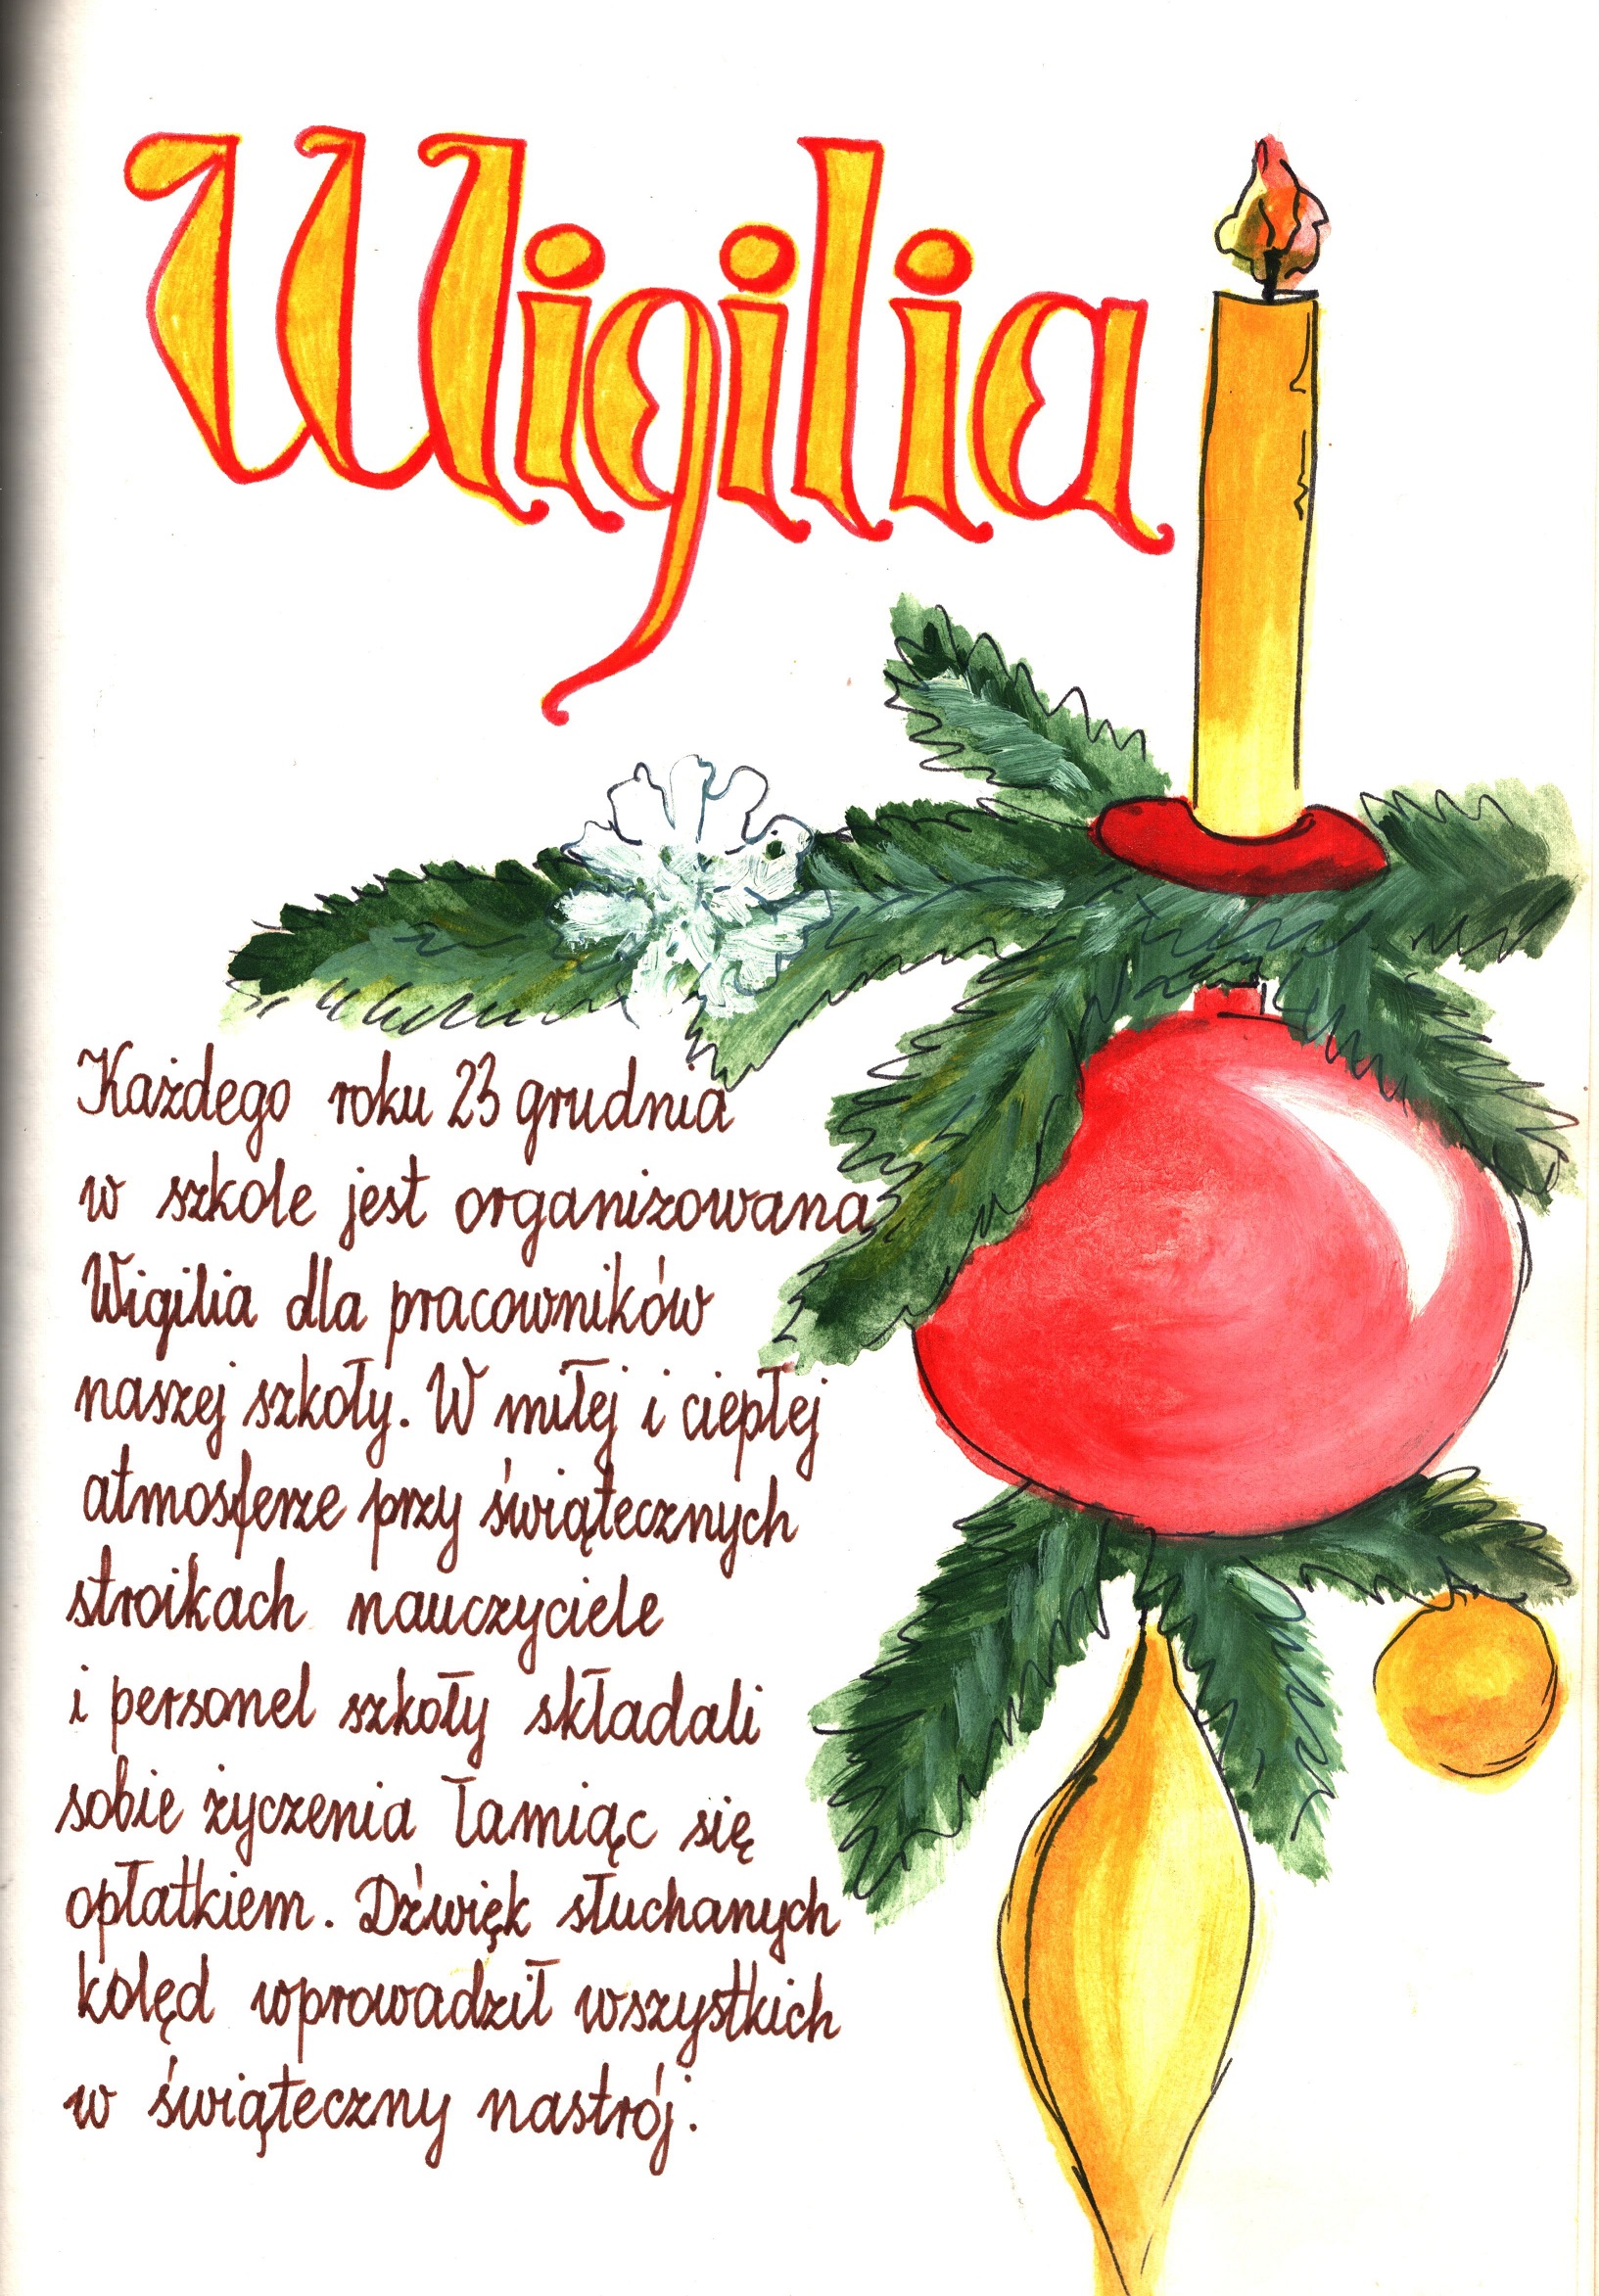 Wigilia
Każdego roku 23 grudnia
w szkole jest organizowana
Wigilia dla pracowników
naszej szkoły. W miłej i ciepłej
atmosferze przy świątecznych
stroikach nauczyciele
i personel szkoły składali
sobie życzenia łamiąc się
opłatkiem. Dźwięk słuchanych
kolęd wprowadził wszystkich
w świąteczny nastrój.